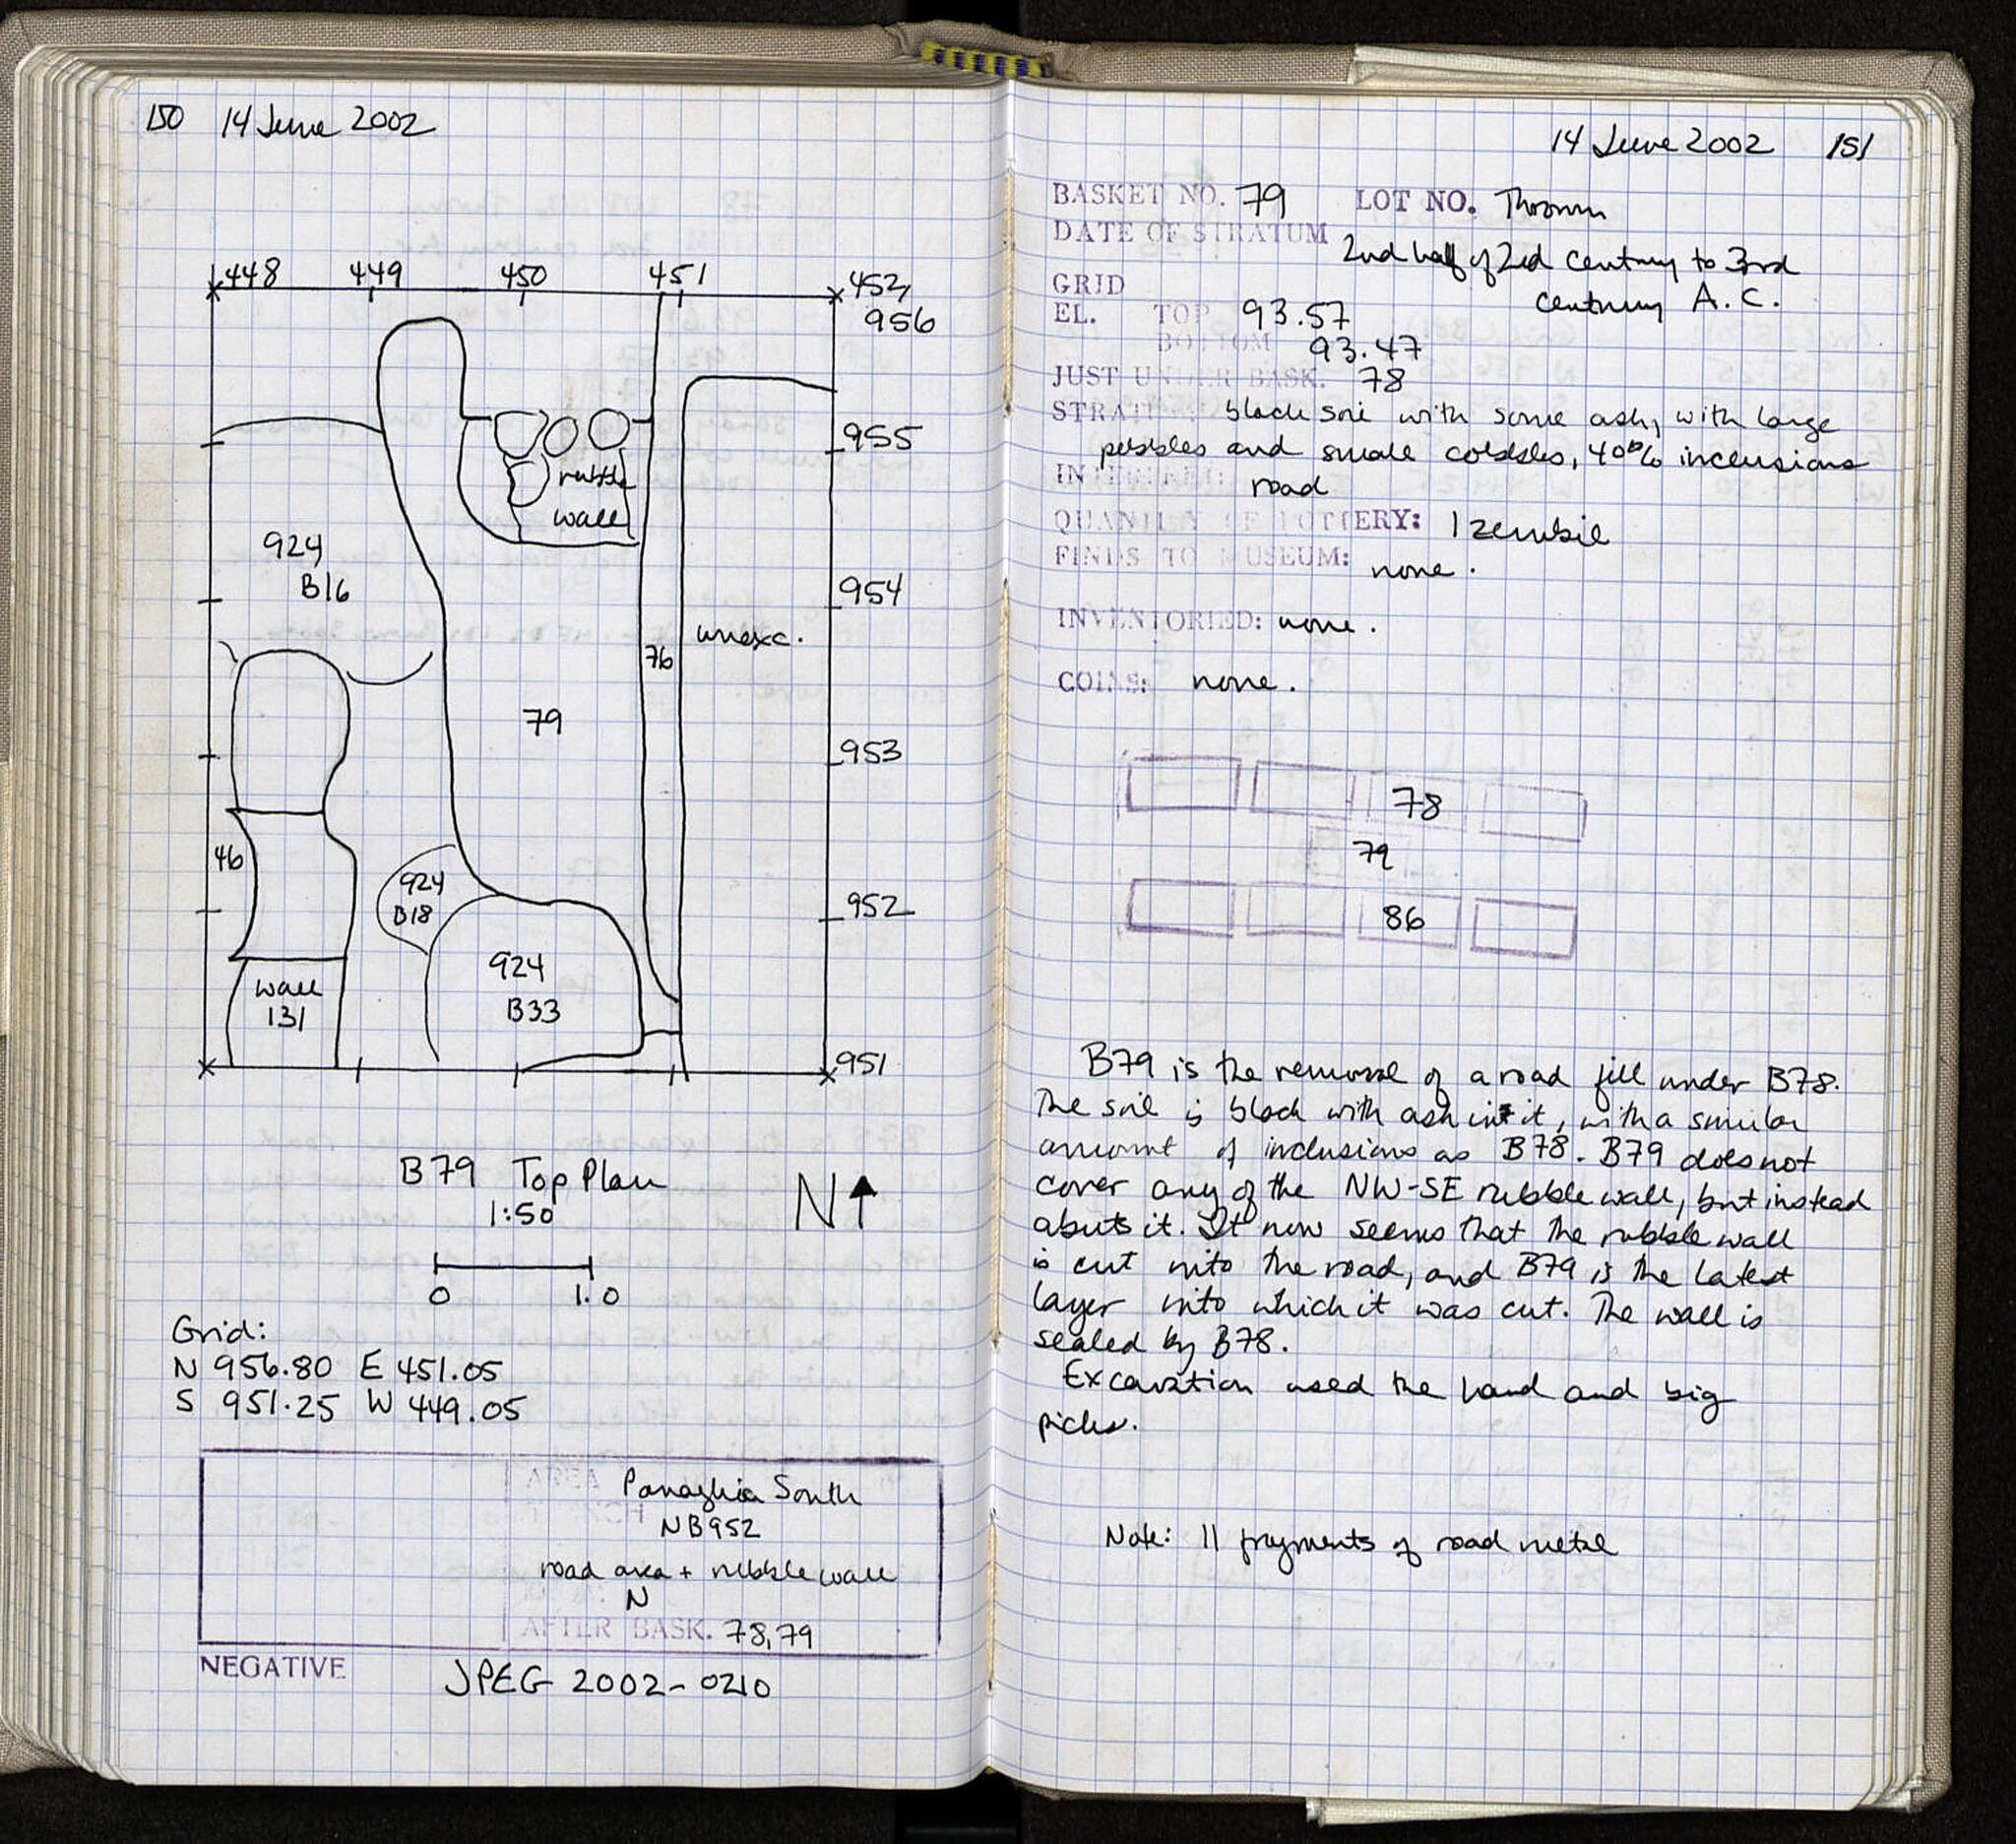 150 14 June 2002
448 449 450 451 452,
956
955
rubble
wall
924
B16
954
unexc.
76
79
953
46
924
B18
952
924
B33
wall
131
951
B79 Top Plan
1:50
N
0 1.0
Grid:
N 956.80 E 451.05
S 951.25 W 449.05
AREA Panaghia South
TRENCH NB952
road area + rubble wall
N
AFTER BASK. 78,79
NEGATIVE JPEG 2002-0210
14 June 2002 151
BASKET NO. 79 LOT NO. Thrown
DATE OF STRATUM 2nd half of 2nd century to 3rd
century A.C.
GRID
EL. TOP 93.57
BOTTOM 93.47
JUST UNDER BASK. 78
STRATUM: black soil with some ash, with large
pebbles and small cobbles, 40% inclusions
road
QUANTITY OF POTTERY: 1 zembil
FINDS TO MUSEUM: none.
INVENTORIED: none.
COINS: none.
78
79
86
B79 is the removal of a road fill under B78.
The soil is black with ash in it, with a similar
amount of inclusions as B78. B79 does not
cover any of the NW-SE rubble wall, but instead
abuts it. It now seems that the rubble wall
is cut into the road, and B79 is the latest
layer into which it was cut. The wall is
sealed by B78.
Excavation used the hand and big
picks.
Note: 11 fragments of road metal